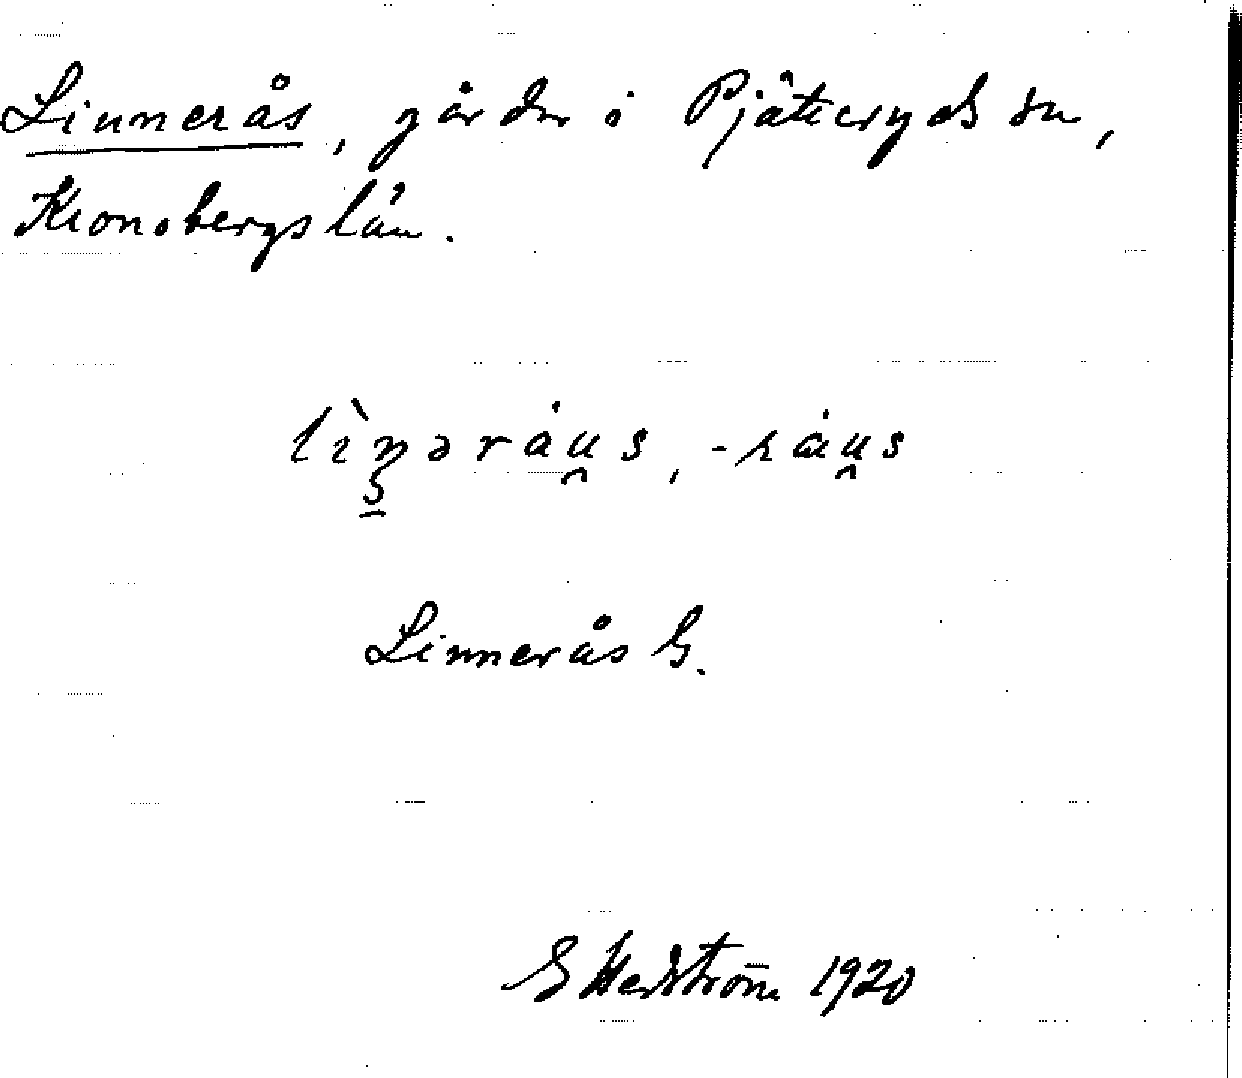 Linnerås, gårdar i Pjätteryds sn,
Kronobergs län.
lìn̠ərȧu̯s, -ʀȧu̯s
Linnerås G.
G Hedström 1920